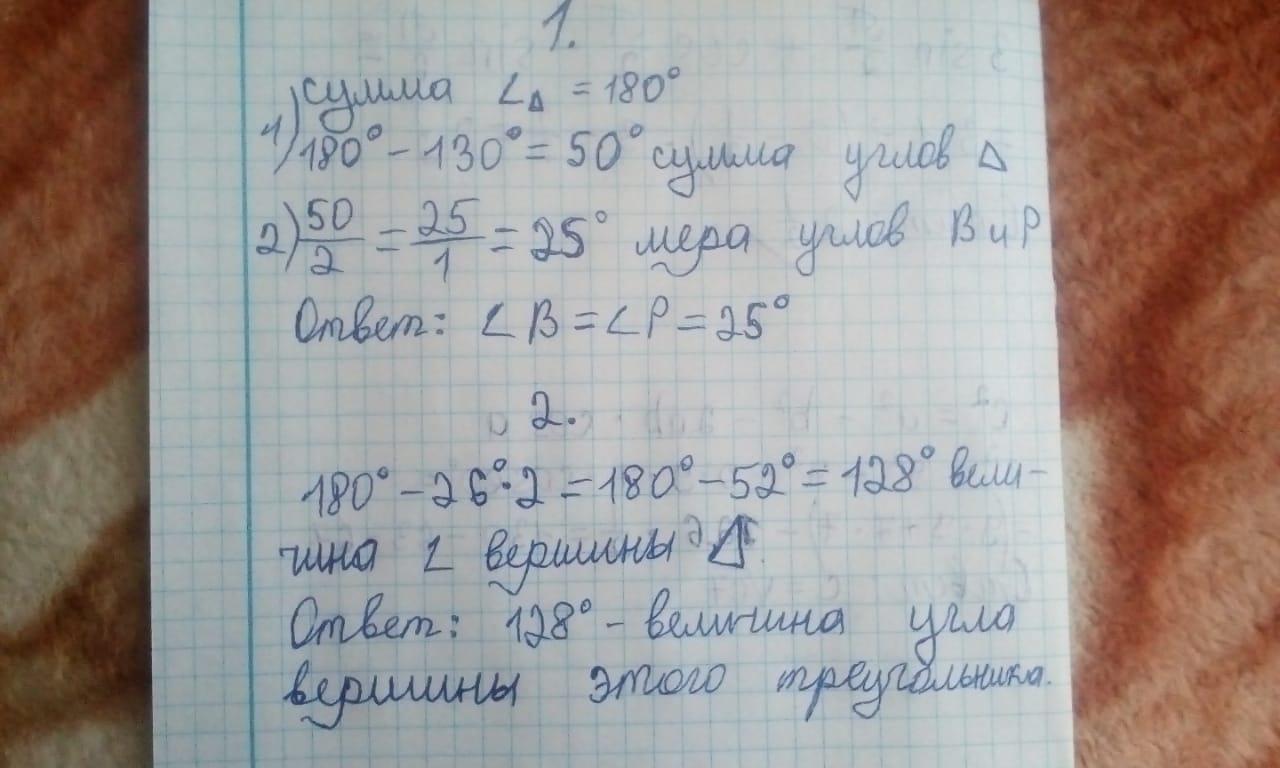 1.
сумма ∠Δ = 180°
1) 180° - 130° = 50° сумма углов Δ
2) 50/2 = 25/1 = 25° мера углов В и Р
Ответ: ∠B = ∠P = 25°
2.
180° - 26°·2 = 180° - 52° = 128° вели-
чина ∠ вершины Δ.
Ответ: 128° - величина угла
вершины этого треугольника.